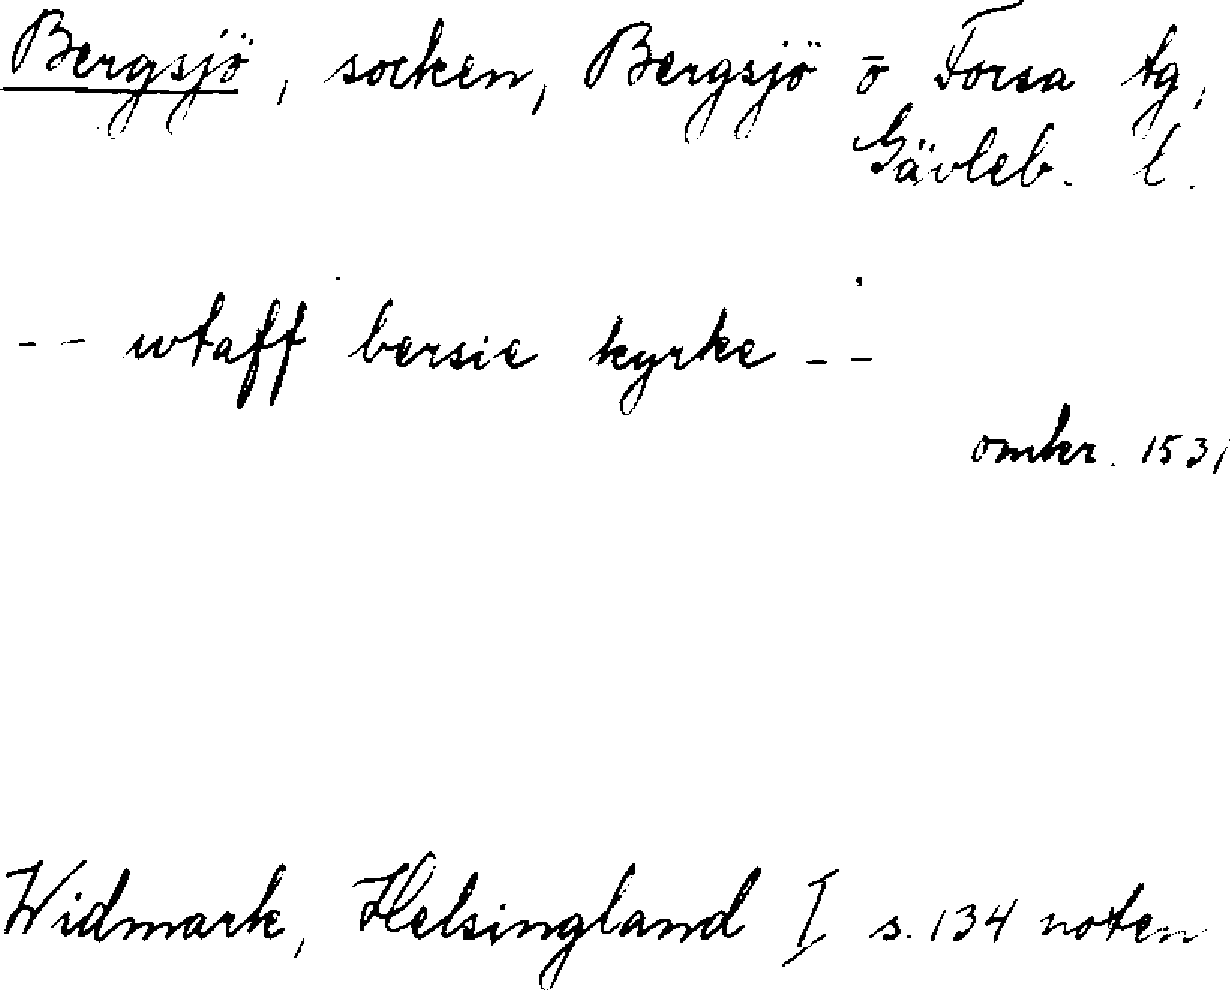 Bergsjö, socken, Bergsjö o Forsa tg,
Gävleb. l.
-- wtaff bersie kyrke --
omkr. 1531
Widmark, Helsingland I s. 134 noten